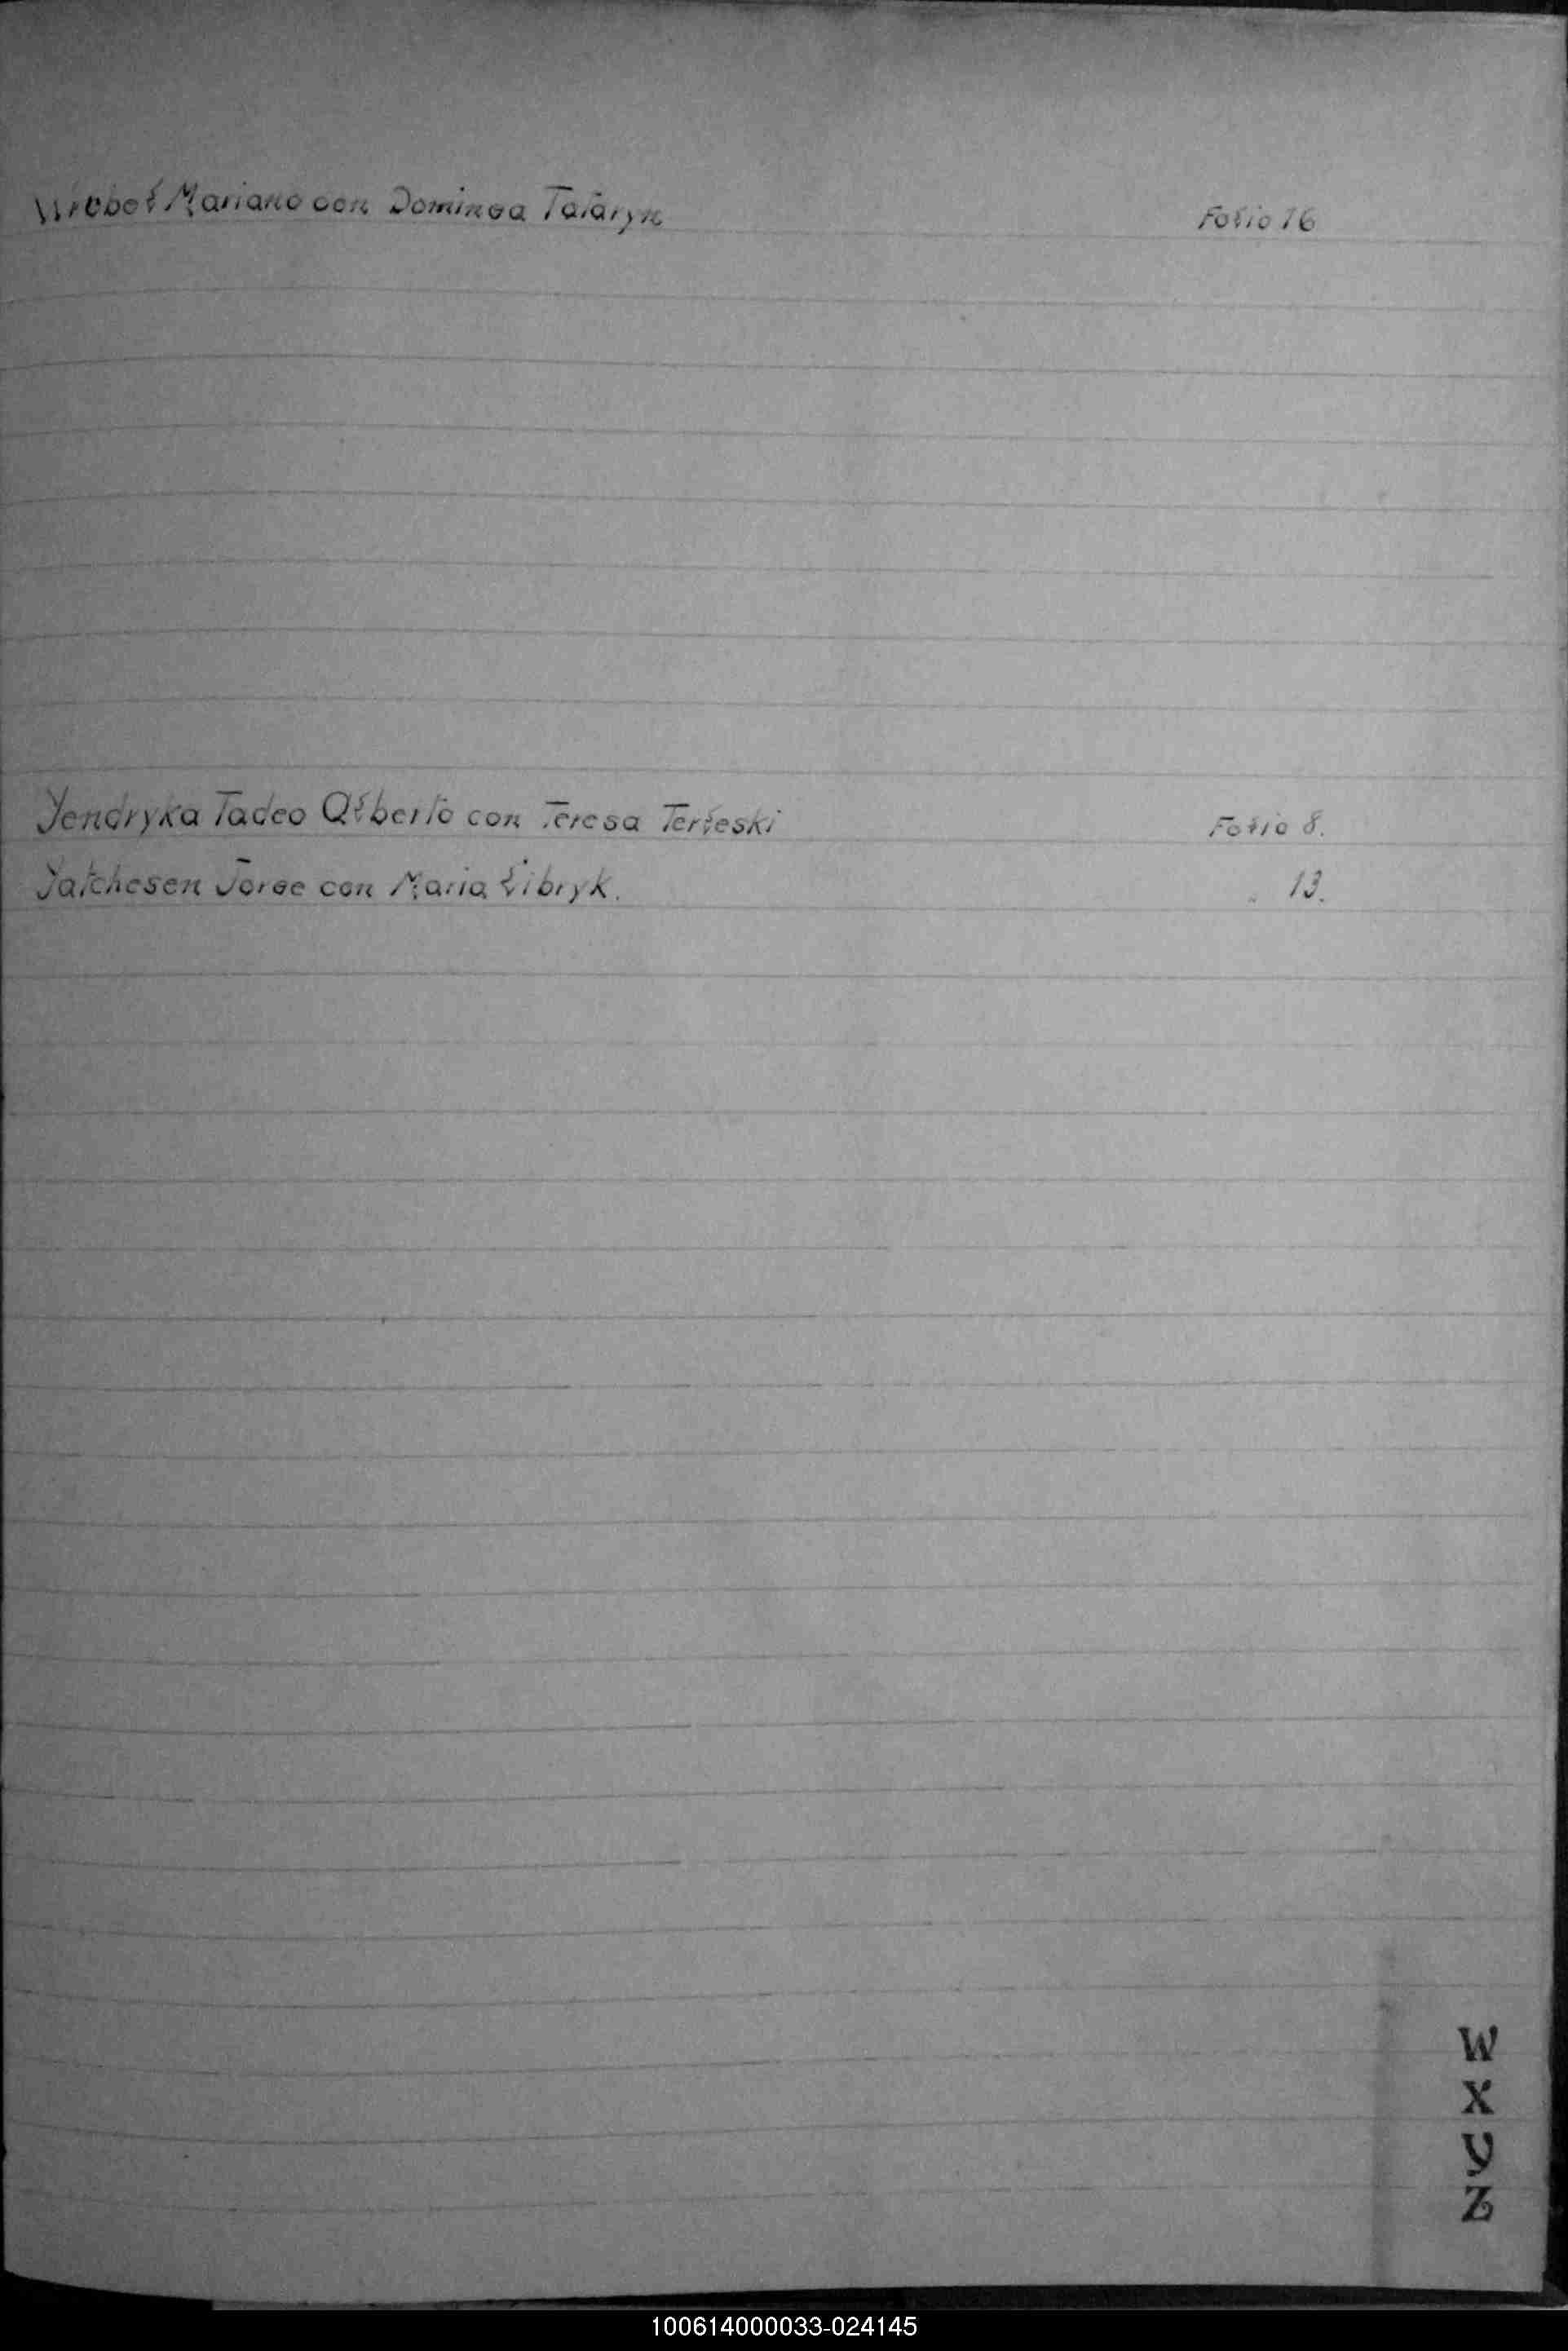 Wrobel Mariano con Dominga Tataryn Folio 16
Yendryka Tadeo Alberto con Teresa Terleski Folio 8.
Yatchesen Jorge con Maria Libryk. " 13.
W
X
Y
Z
100614000033-024145